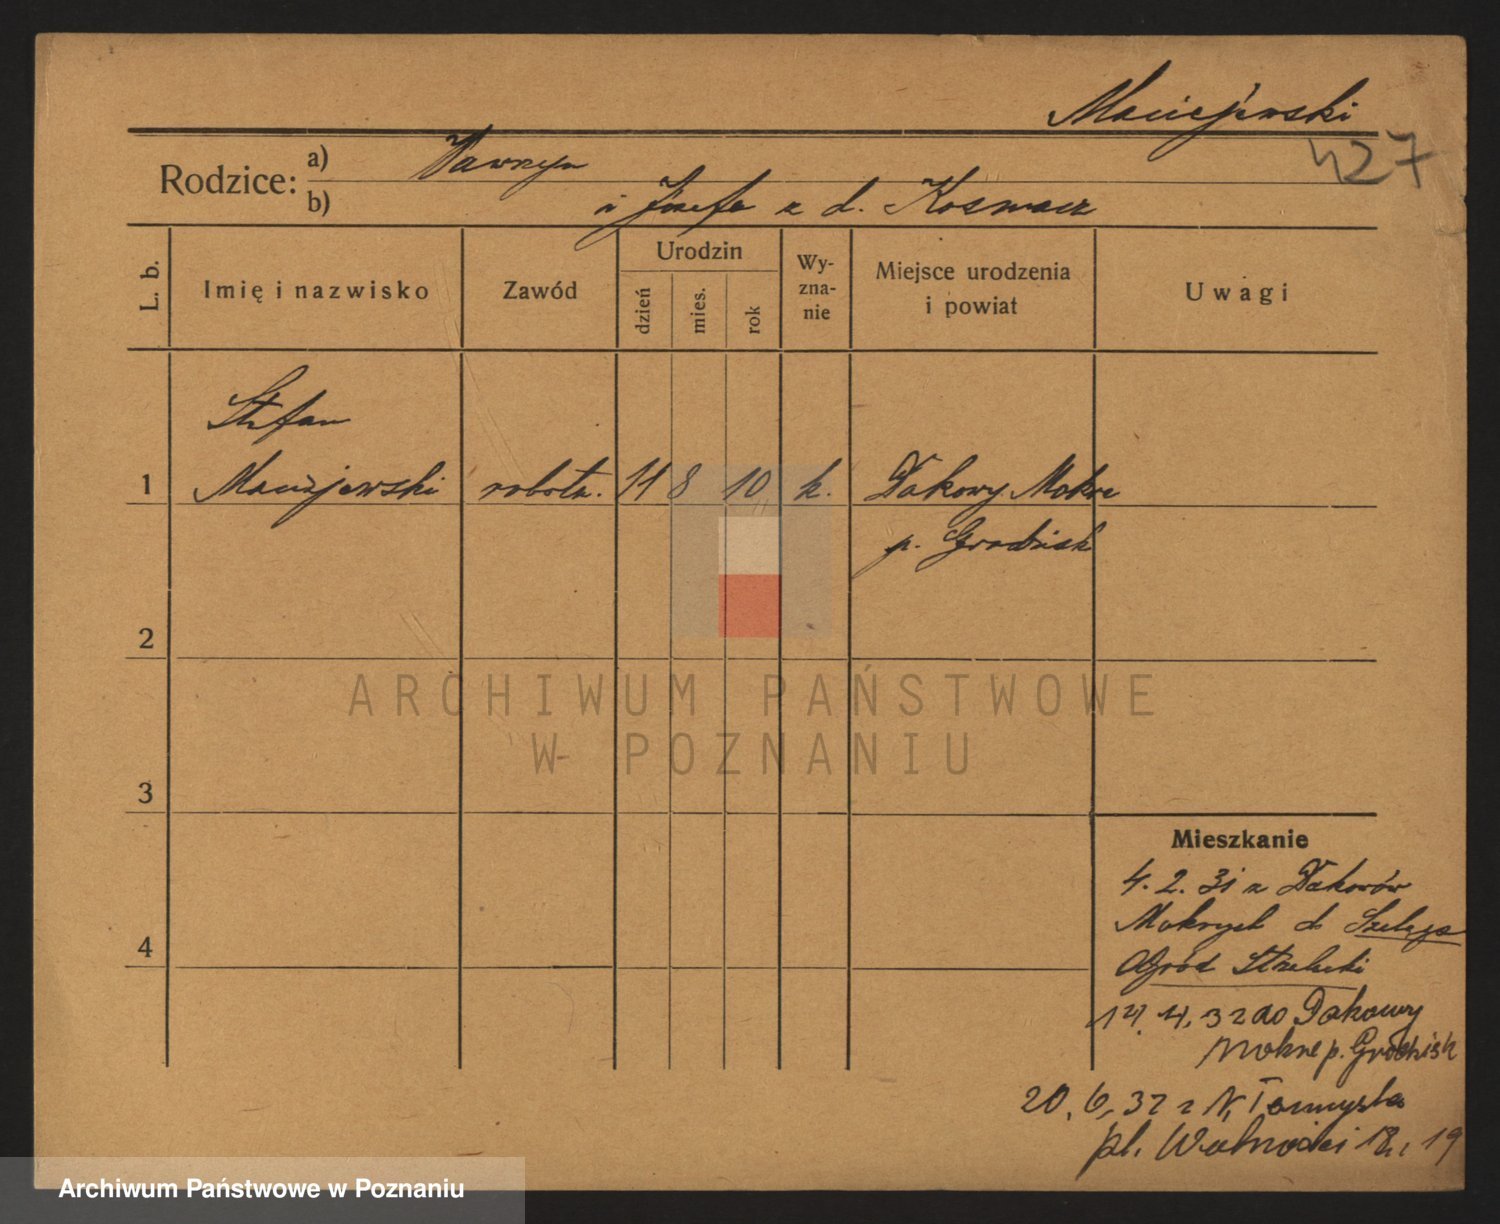 Maciejewski
427
Rodzice: a) Wawrzyn
b) i Józefa z d. Kosmacz
L. b.
Imię i nazwisko
Zawód
Urodzin
dzień
mies.
rok
Wy-
zna-
nie
Miejsce urodzenia
i powiat
Uwagi
Stefan
1 Maciejewski robotn. 11 8 10 k. Dakowy Mokre
p. Grodzisk
2
3
4
Mieszkanie
4. 2. 31 z Dakowów
Mokrych do Szeląga
Ogród Strzelecki
14. 4. 32 do Dakowy
Mokre p. Grodzisk
20. 6. 32 z N. Tomyśla
pl. Wolności 18
ARCHIWUM PAŃSTWOWE
W POZNANIU
Archiwum Państwowe w Poznaniu